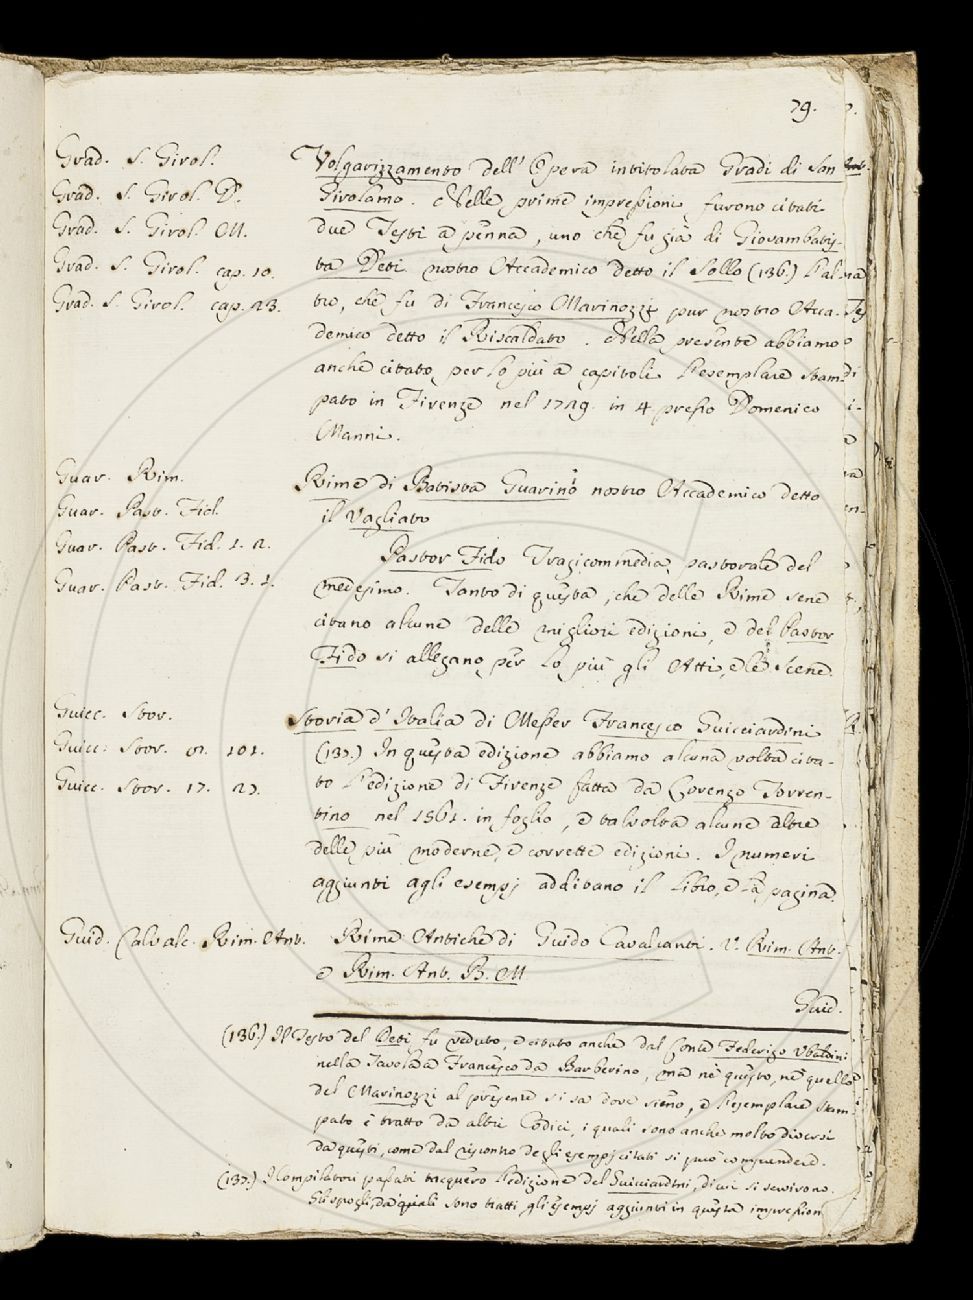 79.
Grad. S. Girol.
Grad. S. Girol. D.
Grad. S. Girol. M.
Grad. S. Girol. cap. 10.
Grad. S. Girol. cap. 23.
Volgarizzamento dell' Opera intitolata Gradi di San
Girolamo. Nelle prime impressioni furono citati
due Testi a penna, uno che fu già di Giovambatis-
ta Deti nostro Accademico detto il Sollo (136.) l'al-
tro, che fu di Francesco Marinozzi pur nostro Acca-
demico detto il Riscaldato. Nella presente abbiamo
anche citato per lo più a capitoli l'esemplare stam-
pato in Firenze nel 1729. in 4 presso Domenico
Manni.
Guar. Rim.
Guar. Past. Fid.
Guar. Past. Fid. 1. 2.
Guar. Past. Fid. 3. 1.
Rime di Batista Guarino nostro Accademico detto
il Vagliato
Pastor Fido Tragicommedia pastorale del
medesimo. Tanto di questa, che delle Rime sene
citano alcune delle migliori edizioni, e del Pastor
Fido si allegano per lo più gli Atti, e le Scene.
Guicc. Stor.
Guicc. Stor. 101.
Guicc. Stor. 17. 27.
Storia d' Italia di Messer Francesco Guicciardini
(137.) In questa edizione abbiamo alcuna volta cita-
to l'edizione di Firenze fatta da Lorenzo Torren-
tino nel 1561. in foglio, e talvolta alcune altre
delle più moderne, e corrette edizioni. I numeri
aggiunti agli esempj additano il Libro, e la pagina.
Guid. Cavalc. Rim. Ant.
Rime Antiche di Guido Cavalcanti. V. Rim. Ant.
e Rim. Ant. B. M
Guid.
(136.) Il Testo del Deti fu veduto, e citato anche dal Conte Federigo Ubaldini
nella Tavola a Francesco da Barberino, ma nè questo, nè quello
del Marinozzi al presente si sa dove sieno, e l'esemplare stam-
pato è tratto da altri Codici, i quali sono anche molto diversi
da questi, come dal riscontro degli esempj citati si può comprendere.
(137.) I Compilatori passati tacquero l'edizione del Guicciardini, di cui si servirono.
Gli spogli, da' quali sono tratti gli esempj aggiunti in questa impression